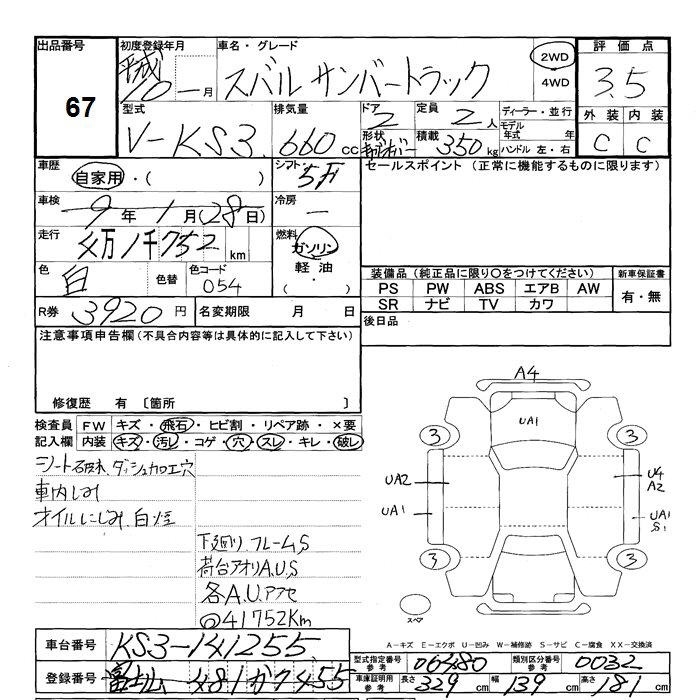 出品番号 67
初度登録年月 平成 10年 一月
車名・グレード スバル サンバートラック
2WD 4WD
評価点 3.5
外装 C 内装 C
型式 V-KS3
排気量 660 cc
ドア 2 形状
定員 2人 積載 350 kg
ディーラー・並行
モデル年式 年
ハンドル 左・右
車歴 自家用・( )
シフト 5F
車検 9年1月(28日)
冷房 一
走行 4万1千752 km
燃料 ガソリン 軽油 ・( )
色 白 色替 色コード 054
R券 3920円 名変期限 月 日
セールスポイント (正常に機能するものに限ります)
装備品(純正品に限り○をつけてください) 新車保証書
PS PW ABS エアB AW 有・無
SR ナビ TV カワ
後日品
注意事項申告欄(不具合内容等は具体的に記入して下さい)
修復歴 有 〔箇所 〕
検査員記入欄
FW キズ・飛石・ヒビ割・リペア跡・×要
内装 キズ・汚レ・コゲ・穴・スレ・キレ・破レ
シート破れ、ダッシュカロ工穴
車内しみ
オイルにじみ、白煙
下廻り、フレームS
荷台アオリA.U.S
各A.U.アクセ
◎41752Km
A4
UA1
3 3
UA2 U4 A2
UA1 UA1 S1
3 3
スペア
A-キズ E-エクボ U-凹み W-補修跡 S-サビ C-腐食 XX-交換済
車台番号 KS3-141255
登録番号 富士山 481か7455
型式指定番号 参考 06480 類別区分番号 参考 0032
車庫証明用 参考 長さ 329 cm 幅 139 cm 高さ 181 cm